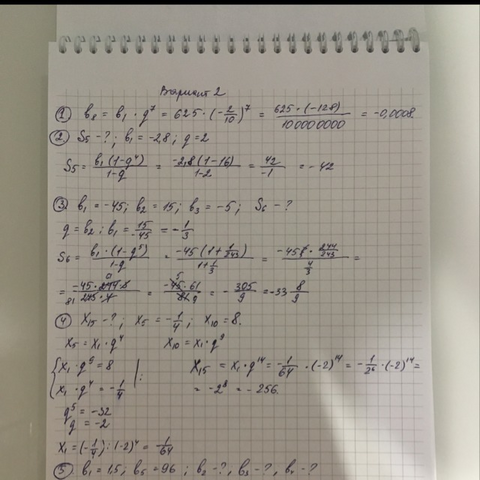 Вариант 2
① b₈ = b₁ · q⁷ = 625 · (-2/10)⁷ = 625 · (-128)/10000000 = -0,0008
② S₅ - ?; b₁ = -2,8; q = 2
S₅ = b₁(1-q⁴)/1-q = -2,8(1-16)/1-2 = 42/-1 = -42
③ b₁ = -45; b₂ = 15; b₃ = -5; S₆ - ?
q = b₂ : b₁ = 15/-45 = -1/3
S₆ = b₁·(1-q⁵)/1-q = -45(1+1/243)/1+1/3 = -45·244/243/4/3 =
= -45·244·3/243·4 = -45·61/81 = -305/9 = -33 8/9
④ X₁₅ - ?; X₅ = -1/4; X₁₀ = 8.
X₅ = X₁·q⁴ X₁₀ = X₁·q⁹
{X₁·q⁹ = 8 X₁₅ = X₁·q¹⁴ = -1/64·(-2)¹⁴ = -1/2⁶·(-2)¹⁴ =
{X₁·q⁴ = -1/4 |: = -2⁸ = -256.
q⁵ = -32
q = -2
X₁ = (-1/4):(-2)⁴ = 1/64
⑤ b₁ = 1,5; b₅ = 96; b₂ - ?, b₃ - ?, b₄ - ?